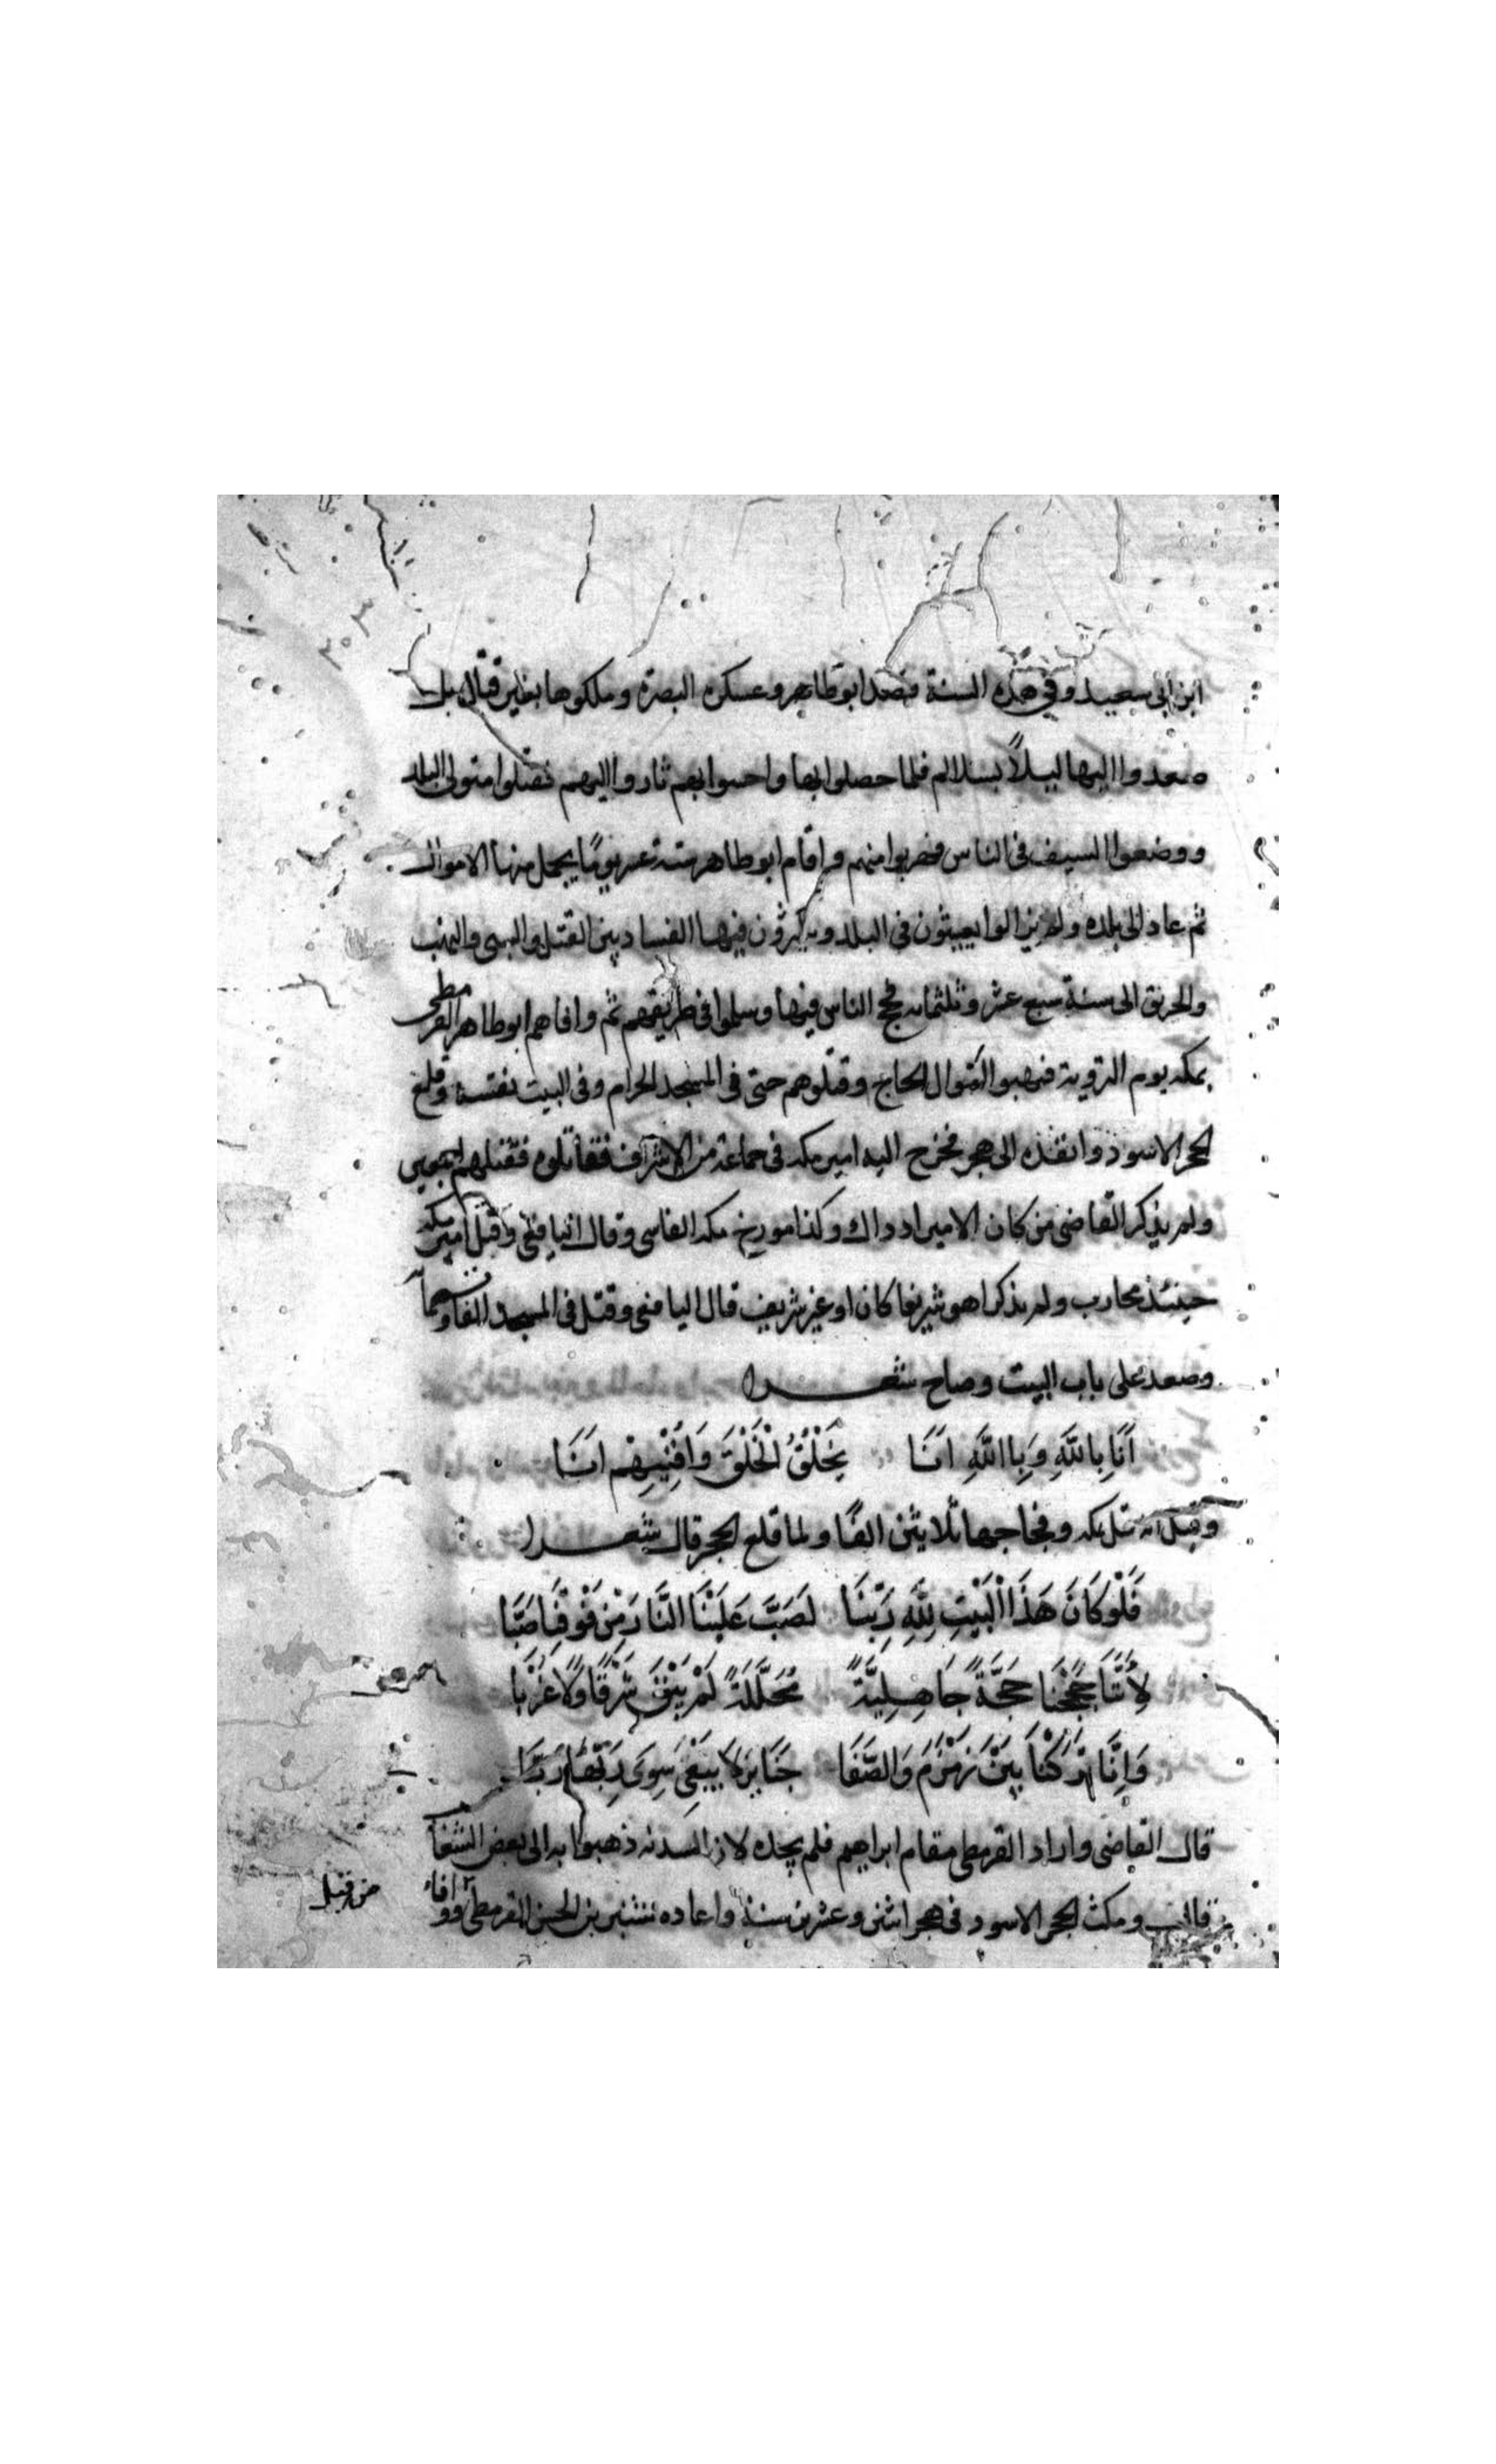 ابن ابى سعيد وفي هذه السنة قصد ابو طاهر وعسكره البصرة وملكوها بغير قتال بل
صعدوا اليها ليلاً بسلالم فلما حصلوا بها واحسوا بهم ثاروا اليهم فقتلوا متولى البلد
ووضعوا السيف فى الناس فهربوا منهم واقام ابو طاهر ستة عشر يومًا يحمل منها الاموال
ثم عاد الى بلده ولم يزالوا يعيثون فى البلد ويكثرون فيها الفساد بين القتل والسبى والنهب
والحريق الى سنة سبع عشر وثلثمايه فحج الناس فيها وسلموا فى طريقهم ثم وافاهم ابو طاهر القرمطى
بمكه يوم التروية فنهبوا اموال الحاج وقتلوهم حتى فى المسجد الحرام وفى البيت نفسه وقلع
الحجر الاسود وانفذه الى هجر فخرج اليه امير مكه فى جماعة من الاشراف فقاتلوه فقتلهم اجمعين
ولم يذكر القاضى من كان الامير اد داك وكذا مورخ مكه الفاسى وقال اليافعى وقتل امير مكه
حينئذ محارب ولم يذكر اهو شريفا كان او غير شريف قال اليافعى وقتل فى المسجد الفا وسبعمأية
وصعد على باب البيت وصاح شعرا
اَنَا بِاللَّهِ وَبِااللَّهِ اَنَا يَخْلُقُ الْخَلْقَ وَاُفْنِيهِمْ اَنَا
وقيل انه قتل بمكه وفجاجها ثلاثين الفًا ولما قلع الحجر قال شعرا
فَلَوْ كَانَ هَذَا الْبَيْتِ لِلَّهِ رَبِّنَا لَصَبَّ عَلَيْنَا النَّارَ مِنْ فَوْقِنَا صَبَّا
لِأَنَّا حَجَجْنَا حَجَّةً جَاهِلِيَّةً مُحَلَّلَةً لَمْ يَبْقَ شَرْقًا وَلَا غَرْبَا
وَاِنَّا تَرَكْنَا بَيْنَ زَمْزَمَ وَالصَّفَا جَنَايِزَ لَا يَبْغِى سِوَى رَبِّهَا رَبَّا
قال القاضى واراد القرمطى مقام ابراهيم فلم يجده لان السدنه ذهبوا به الى بعض الشعاب
قال ومكث الحجر الاسود فى هجر اثنين وعشرين سنة واعاده سنبر بن الحسن القرمطى ووافا
من قبل